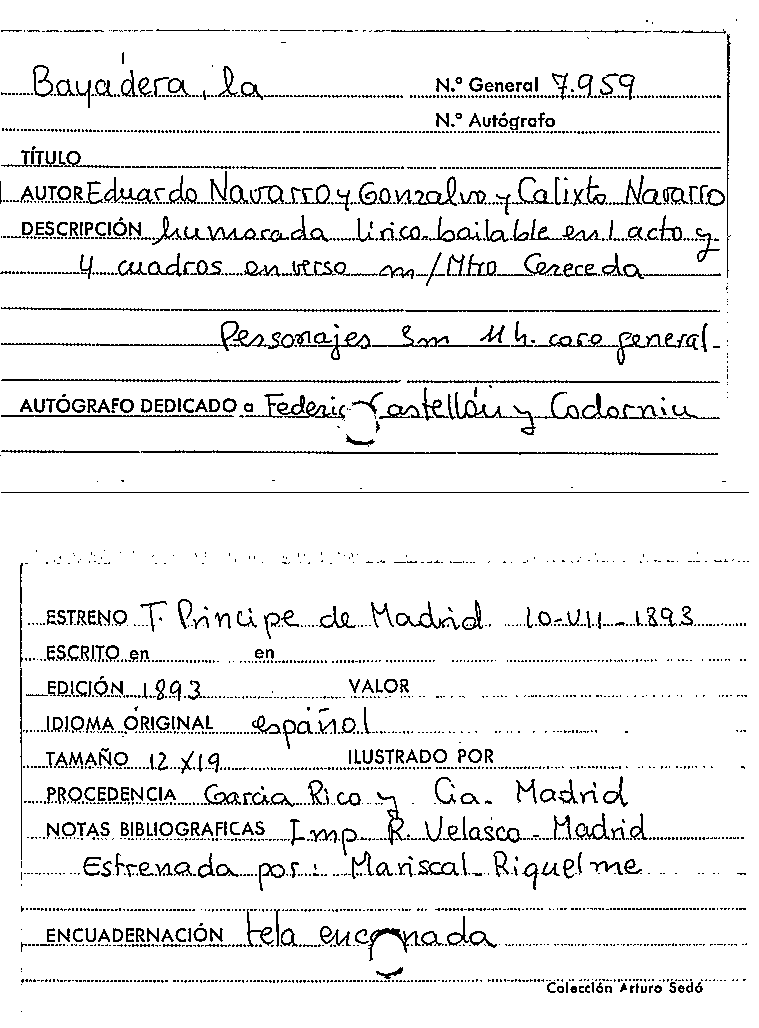 Bayadera, la N.º General 7.959
N.º Autógrafo
TÍTULO
AUTOR Eduardo Navarro y Gonzalvo y Calixto Navarro
DESCRIPCIÓN humorada lírico-bailable en 1 acto y
4 cuadros en verso m/Mtro Cereceda
Personajes 3m 11 h. coro general-
AUTÓGRAFO DEDICADO a Federico Castellón y Codorniu
ESTRENO T. Principe de Madrid 10-VII-1893
ESCRITO en en
EDICIÓN 1893 VALOR
IDIOMA ORIGINAL español
TAMAÑO 12 X 19 ILUSTRADO POR
PROCEDENCIA Garcia Rico y Cia. Madrid
NOTAS BIBLIOGRAFICAS Imp. R. Velasco - Madrid
Estrenada por: Mariscal - Riquelme
ENCUADERNACIÓN tela encarnada
Colección Arturo Sedó